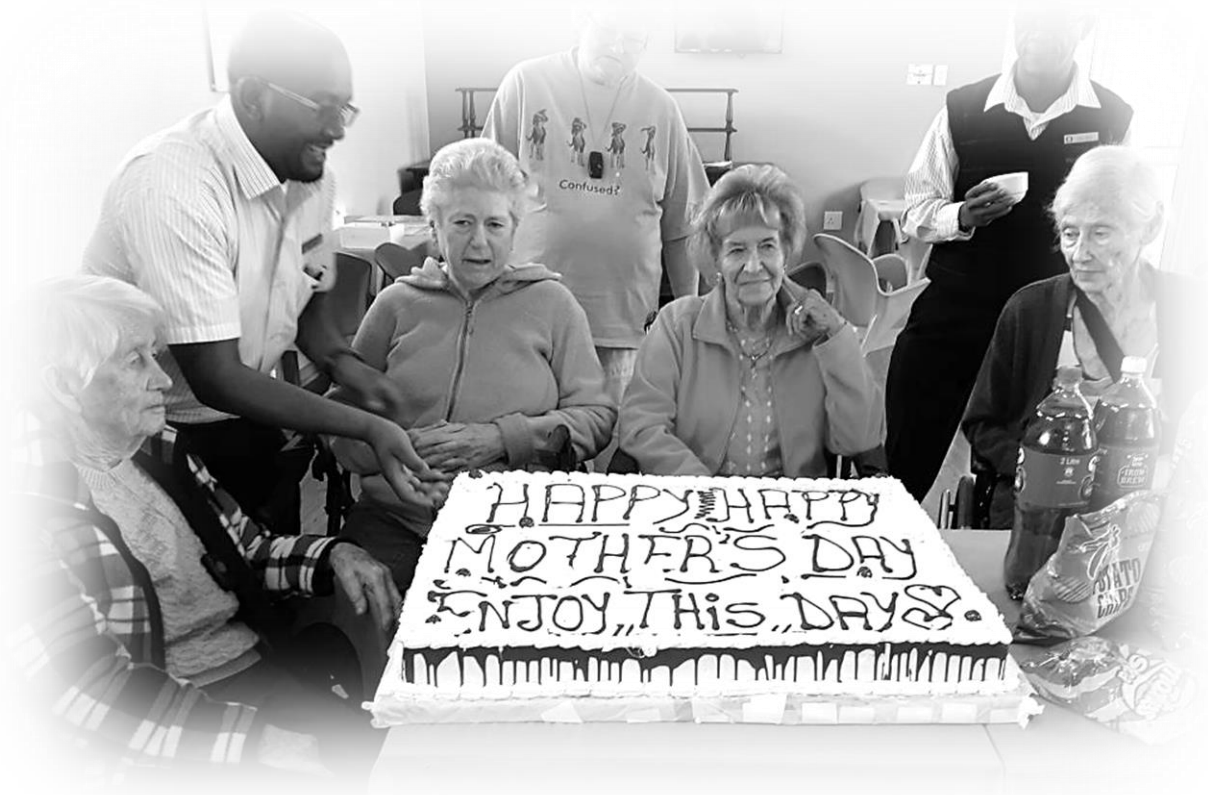 Confused?
HAPPY HAPPY
MOTHER'S DAY
ENJOY,,THiS,,DAY
2 Litre
IRON
BREW
POTATO
CHIPS